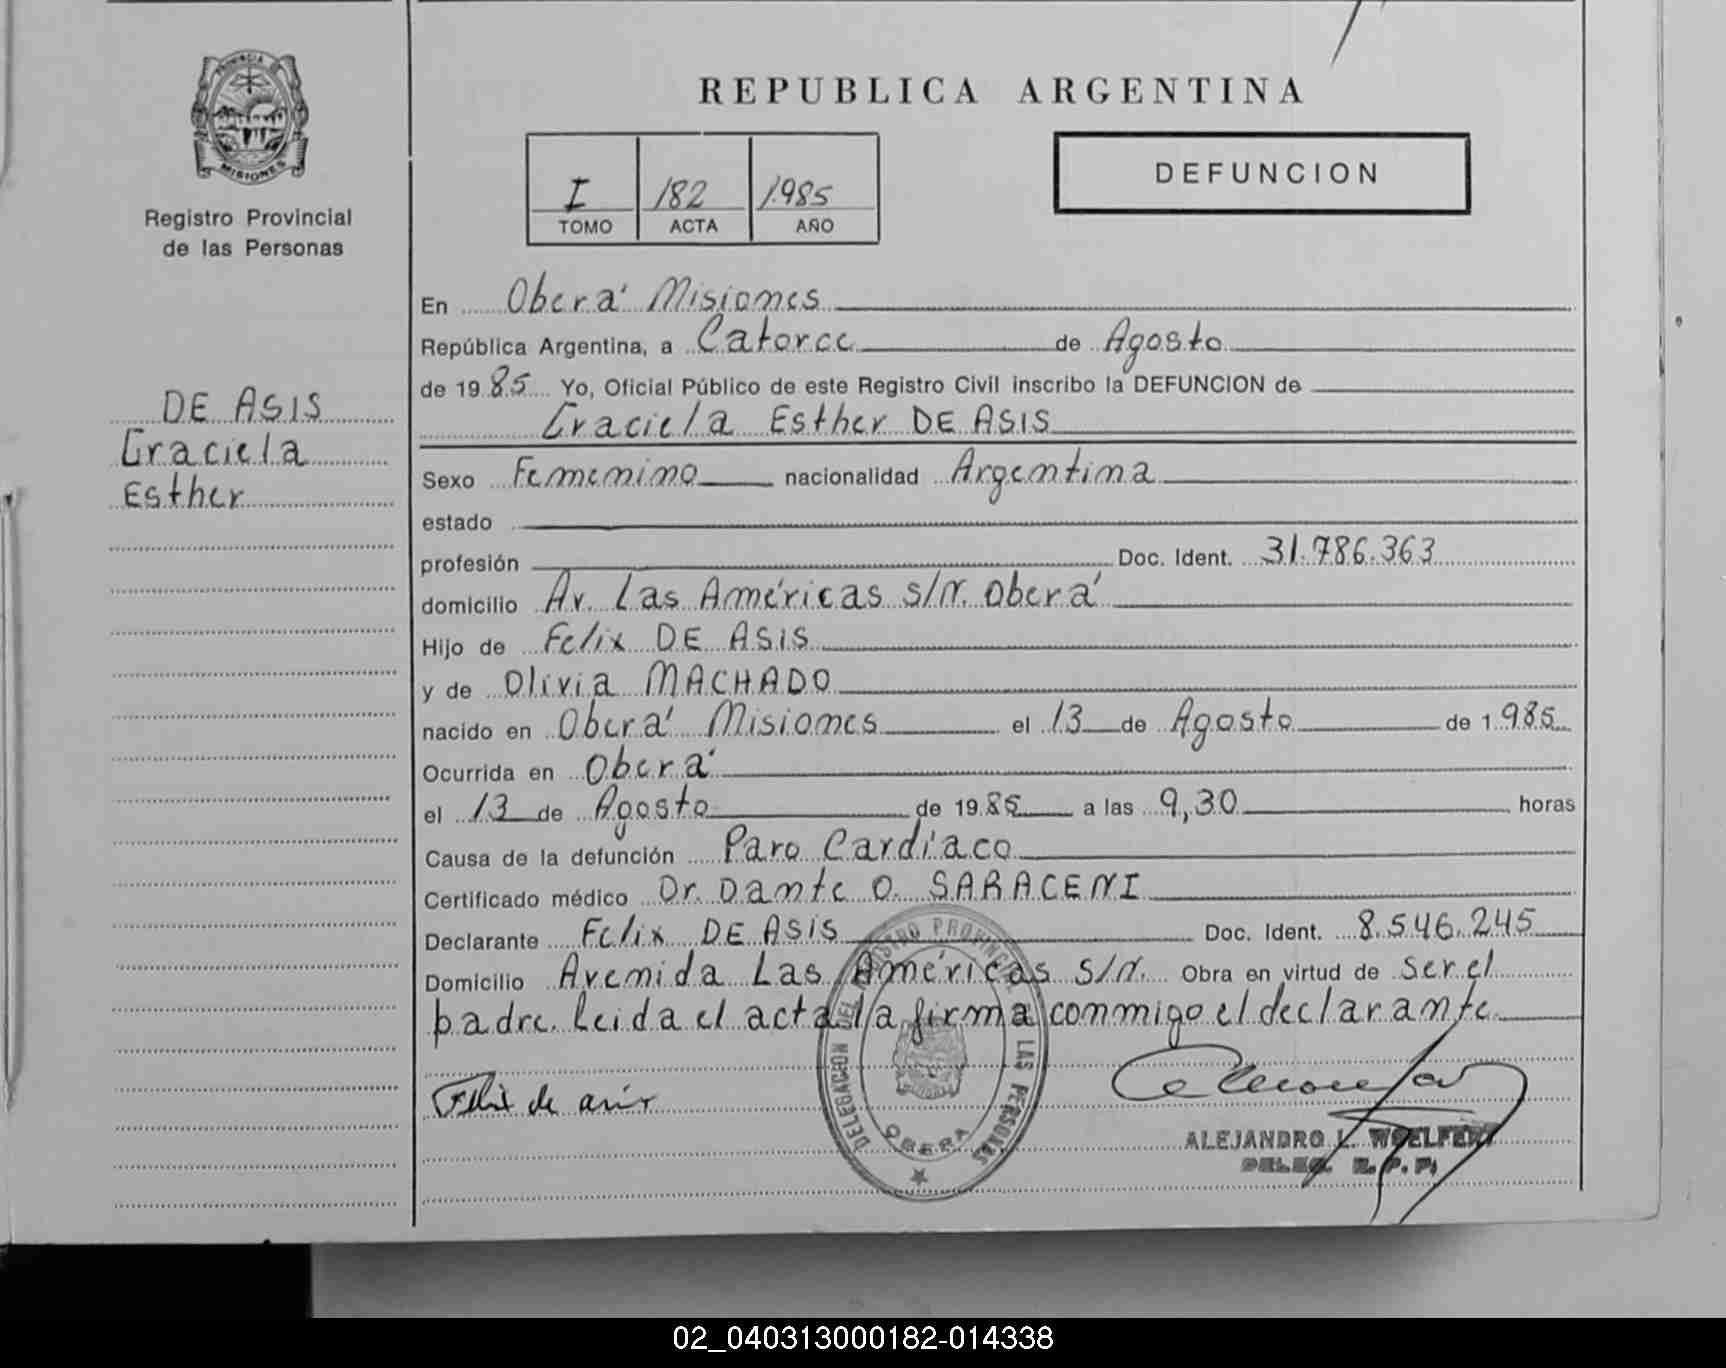 PROVINCIA DE
MISIONES
Registro Provincial
de las Personas
DE ASIS
Graciela
Esther
REPUBLICA ARGENTINA
I 182 1.985
TOMO ACTA AÑO
DEFUNCION
En Oberá Misiones
República Argentina, a Catorce de Agosto
de 19 85 Yo, Oficial Público de este Registro Civil inscribo la DEFUNCION de
Graciela Esther DE ASIS
Sexo Femenino nacionalidad Argentina
estado
profesión Doc. Ident. 31.786.363
domicilio Av. Las Américas s/N. Oberá
Hijo de Felix DE ASIS
y de Olivia MACHADO
nacido en Oberá Misiones el 13 de Agosto de 1.985
Ocurrida en Oberá
el 13 de Agosto de 19 85 a las 9,30 horas
Causa de la defunción Paro Cardíaco
Certificado médico Dr. Dante O. SARACENI
Declarante Felix DE ASIS Doc. Ident. 8.546.245
Domicilio Avenida Las Américas S/N. Obra en virtud de ser el
padre. Leida el acta la firma conmigo el declarante.
Felix de asis
DELEGACION DEL REGISTRO PROVINCIAL DE LAS PERSONAS
OBERA
ALEJANDRO L. WOELFERT
DELEG. R. P. P.
02_040313000182-014338